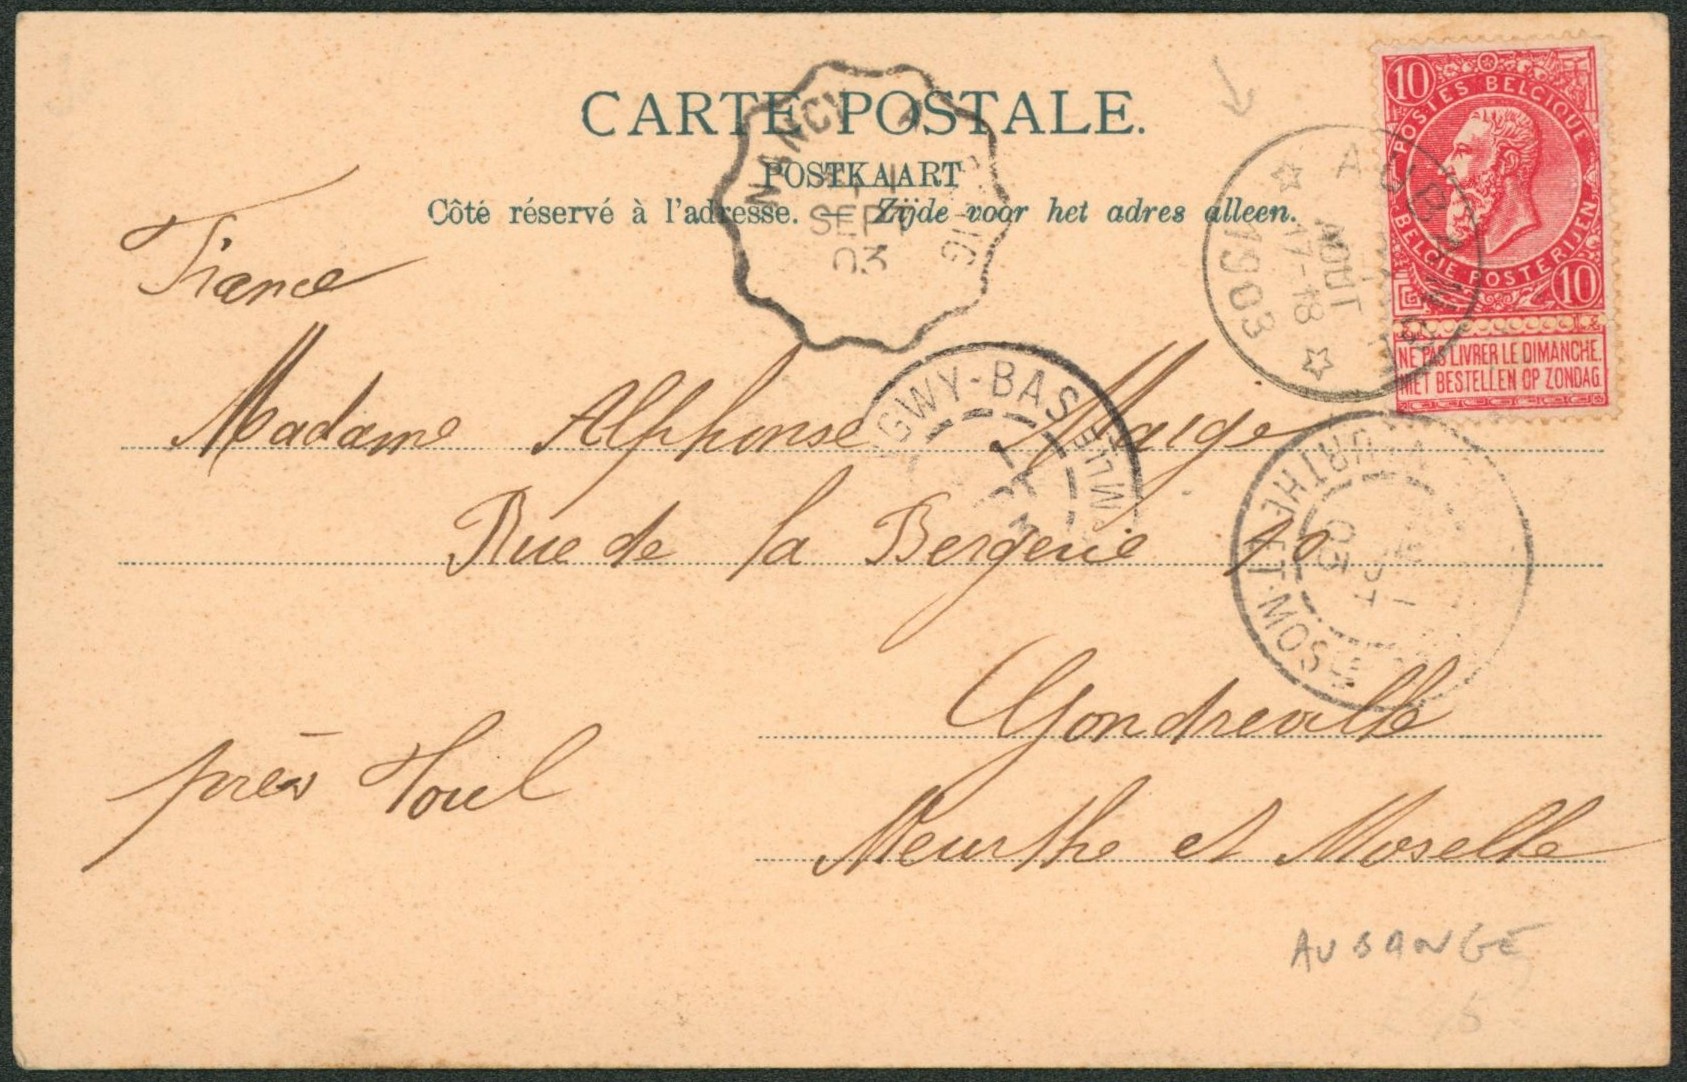 CARTE POSTALE.
POSTKAART
Côté réservé à l'adresse. — Zijde voor het adres alleen.
10
POSTES BELGIQUE
BELGIE POSTERIJEN
10
NE PAS LIVRER LE DIMANCHE.
NIET BESTELLEN OP ZONDAG
NANCY A
SEPT
03
AUBANGE
AOUT
17-18
1903
France
Madame Alphonse Maige
GWY-BAS
1
Rue de la Bergerie 10
MEURTHE-ET-MOSELLE
03
Gondreville
près Toul
Meurthe et Moselle
AUBANGE